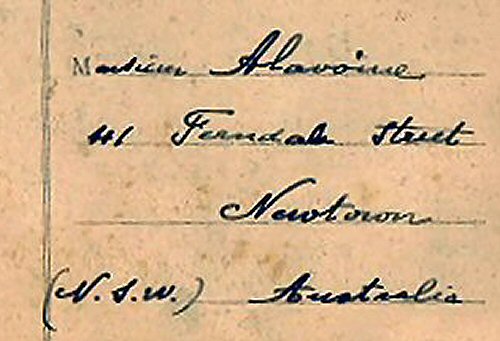 Monsieur Alavoine
41 Ferndale Street
Newtown
(N.S.W.) Australia